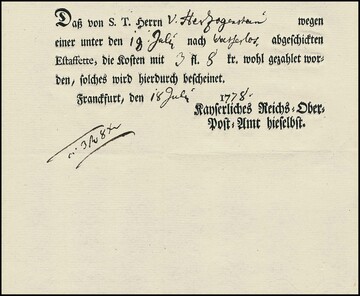 Daß von S. T. Herrn v. Herzogenstein wegen
einer unter den 19 July nach abgeschickten
Estaffette, die Kosten mit 3 fl. 8 kr. wohl gezahlt wor-
den, solches wird hierdurch bescheinet.
Franckfurt, den 18 July 1778.
Kayserliches Reichs-Ober-
Post-Amt hieselbst.